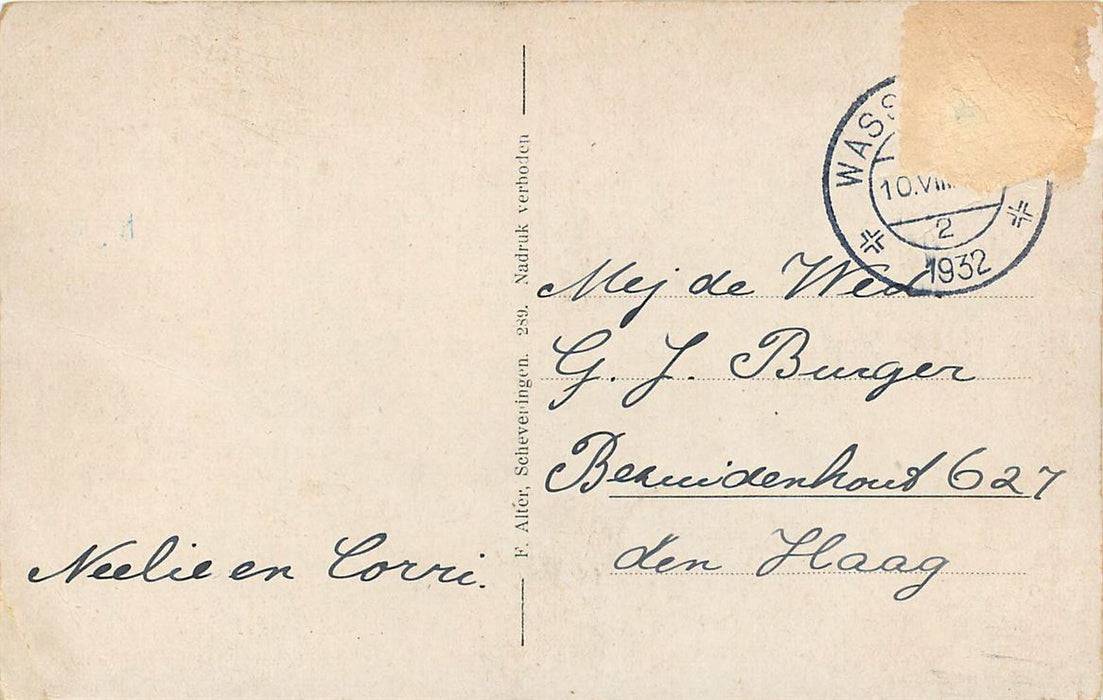 WASS
10.VIII
2
1932
Mej de Wed.
G. J. Burger
Bezuidenhout 627
den Haag
Neelie en Corri.
F. Alter, Scheveningen. 289. Nadruk verboden